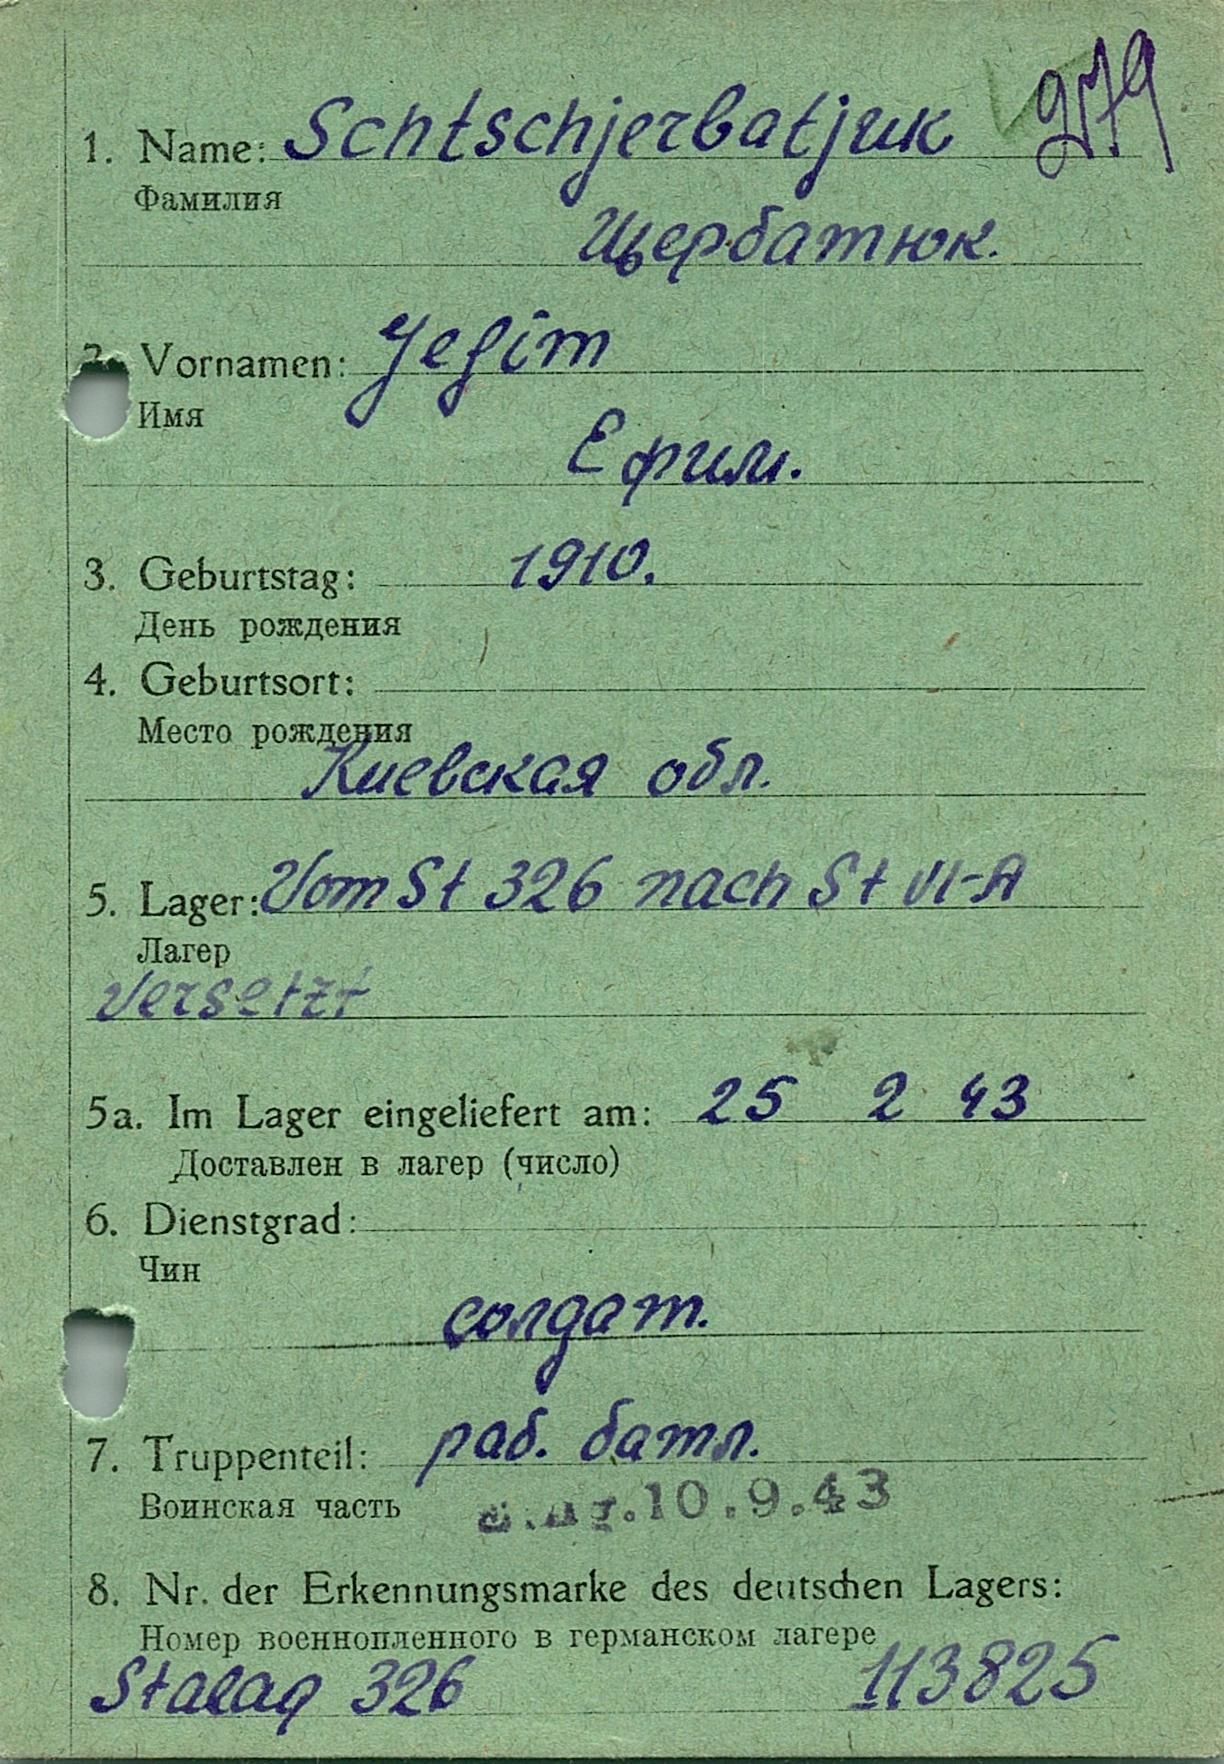 279
1. Name: Schtschjerbatjuk
Фамилия
Щербатюк.
2. Vornamen: Jefim
Имя
Ефим.
3. Geburtstag: 1910.
День рождения
4. Geburtsort:
Место рождения
Киевская обл.
5. Lager: Vom St 326 nach St VI-A
Лагер
versetzt
5a. Im Lager eingeliefert am: 25 2 43
Доставлен в лагер (число)
6. Dienstgrad:
Чин
солдат.
7. Truppenteil: раб. батл.
Воинская часть
10.9.43
8. Nr. der Erkennungsmarke des deutschen Lagers:
Номер военнопленного в германском лагере
Stalag 326 113825